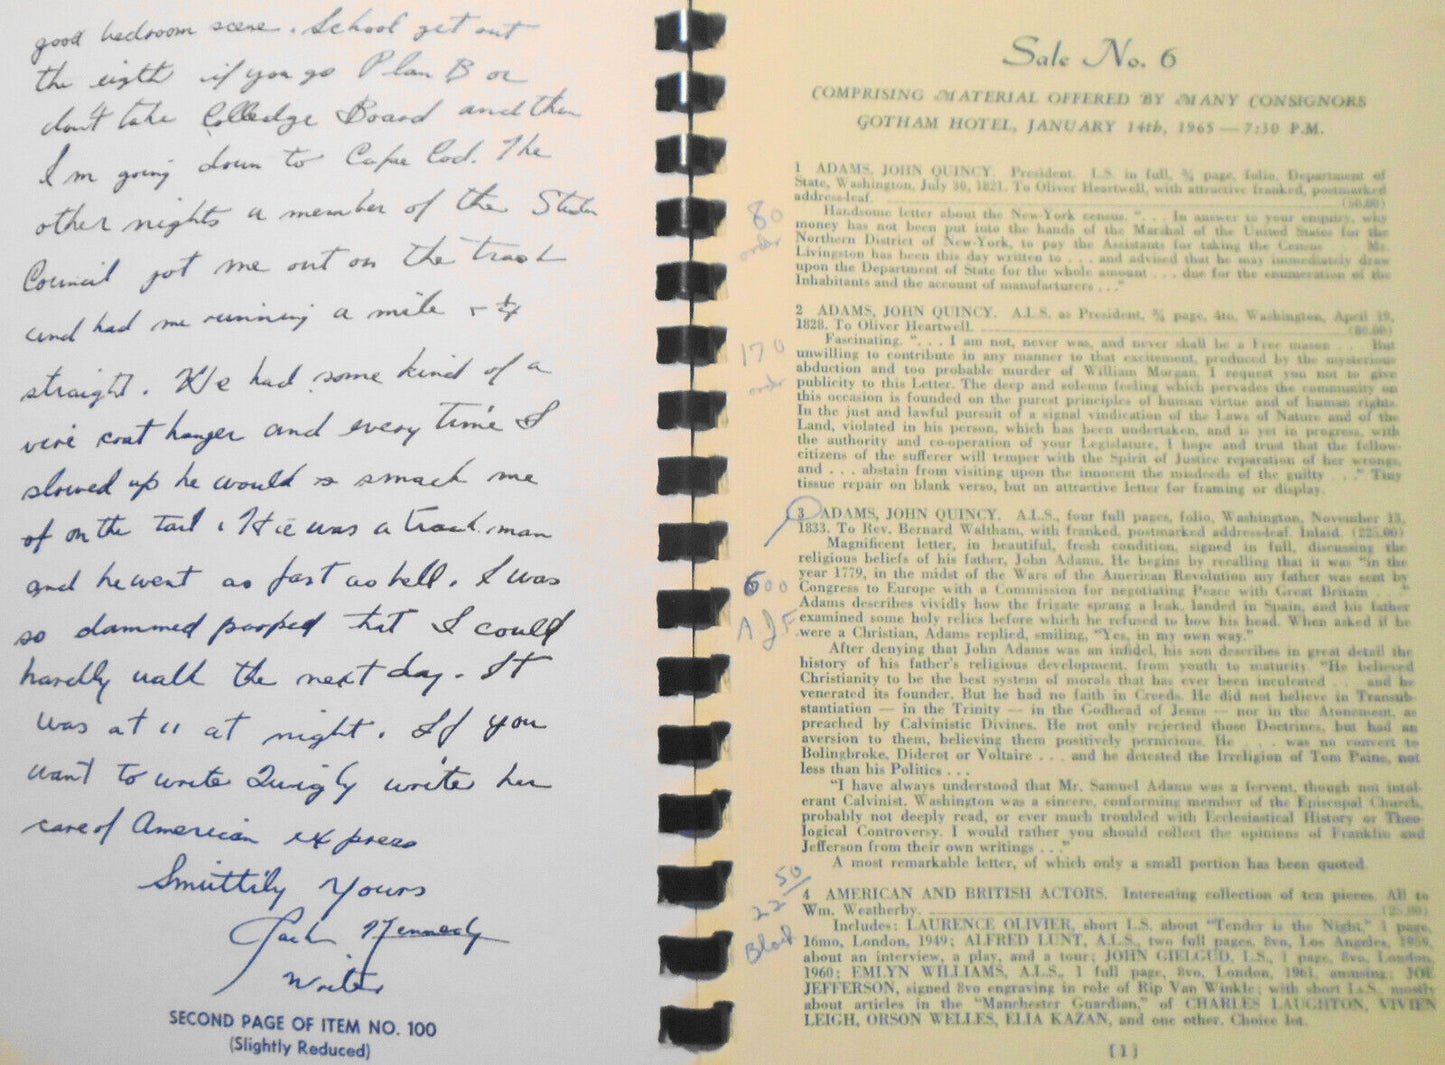 good bedroom scene. School get out
the eigth if you go Plan B or
don't take Colledge Board and then
I'm going down to Cape Cod. The
other nights a member of the Studen
Council got me out on the track
and had me running a mile
straight. He had some kind of a
wire coat hanger and every time I
slowed up he would smack me
of on the tail. He was a track man
and he went as fast as hell. I was
so dammed pooped that I could
hardly walk the next day. It
was at 11 at night. If you
want to write Quigly write her
care of American express
Smuttily Yours
Jack Kennedy
Writer
SECOND PAGE OF ITEM NO. 100
(Slightly Reduced)
Sale No. 6
COMPRISING MATERIAL OFFERED BY MANY CONSIGNORS
GOTHAM HOTEL, JANUARY 14th, 1965 — 7:30 P.M.
1 ADAMS, JOHN QUINCY. President. L.S. in full, ¾ page, folio, Department of
State, Washington, July 30, 1821. To Oliver Heartwell, with attractive franked, postmarked
address-leaf. (50.00)
Handsome letter about the New-York census. ". . . In answer to your enquiry, why
money has not been put into the hands of the Marshal of the United States for the
Northern District of New-York, to pay the Assistants for taking the Census . . . Mr.
Livingston has been this day written to . . . and advised that he may immediately draw
upon the Department of State for the whole amount . . . due for the enumeration of the
Inhabitants and the account of manufacturers . . ."
80
order
2 ADAMS, JOHN QUINCY. A.L.S. as President, ¾ page, 4to, Washington, April 19,
1828. To Oliver Heartwell. (80.00)
Fascinating. ". . . I am not, never was, and never shall be a Free mason . . . But
unwilling to contribute in any manner to that excitement, produced by the mysterious
abduction and too probable murder of William Morgan, I request you not to give
publicity to this Letter. The deep and solemn feeling which pervades the community on
this occasion is founded on the purest principles of human virtue and of human rights.
In the just and lawful pursuit of a signal vindication of the Laws of Nature and of the
Land, violated in his person, which has been undertaken, and is yet in progress, with
the authority and co-operation of your Legislature, I hope and trust that the fellow-
citizens of the sufferer will temper with the Spirit of Justice reparation of her wrongs,
and . . . abstain from visiting upon the innocent the misdeeds of the guilty . . ." Tiny
tissue repair on blank verso, but an attractive letter for framing or display.
170
order
3 ADAMS, JOHN QUINCY. A.L.S., four full pages, folio, Washington, November 13,
1833. To Rev. Bernard Waltham, with franked, postmarked address-leaf. Inlaid. (225.00)
Magnificent letter, in beautiful, fresh condition, signed in full, discussing the
religious beliefs of his father, John Adams. He begins by recalling that it was "in the
year 1779, in the midst of the Wars of the American Revolution my father was sent by
Congress to Europe with a Commission for negotiating Peace with Great Britain . . ."
Adams describes vividly how the frigate sprang a leak, landed in Spain, and his father
examined some holy relics before which he refused to bow his head. When asked if he
were a Christian, Adams replied, smiling, "Yes, in my own way."
After denying that John Adams was an infidel, his son describes in great detail the
history of his father's religious development, from youth to maturity. "He believed
Christianity to be the best system of morals that has ever been inculcated . . . and he
venerated its founder. But he had no faith in Creeds. He did not believe in Transub-
stantiation — in the Trinity — in the Godhead of Jesus — nor in the Atonement, as
preached by Calvinistic Divines. He not only rejected those Doctrines, but had an
aversion to them, believing them positively pernicious. He . . . was no convert to
Bolingbroke, Diderot or Voltaire . . . and he detested the Irreligion of Tom Paine, not
less than his Politics . . .
"I have always understood that Mr. Samuel Adams was a fervent, though not intol-
erant Calvinist. Washington was a sincere, conforming member of the Episcopal Church,
probably not deeply read, or ever much troubled with Ecclesiastical History or Theo-
logical Controversy. I would rather you should collect the opinions of Franklin and
Jefferson from their own writings . . ."
A most remarkable letter, of which only a small portion has been quoted.
600
4 AMERICAN AND BRITISH ACTORS. Interesting collection of ten pieces. All to
Wm. Weatherby. (25.00)
Includes: LAURENCE OLIVIER, short L.S. about "Tender is the Night," 1 page,
16mo, London, 1949; ALFRED LUNT, A.L.S., two full pages, 8vo, Los Angeles, 1959,
about an interview, a play, and a tour; JOHN GIELGUD, L.S., 1 page, 8vo, London,
1960; EMLYN WILLIAMS, A.L.S., 1 full page, 8vo, London, 1961, amusing; JOE
JEFFERSON, signed 8vo engraving in role of Rip Van Winkle; with short L.S. mostly
about articles in the "Manchester Guardian," of CHARLES LAUGHTON, VIVIEN
LEIGH, ORSON WELLES, ELIA KAZAN, and one other. Choice lot.
22 50
[1]